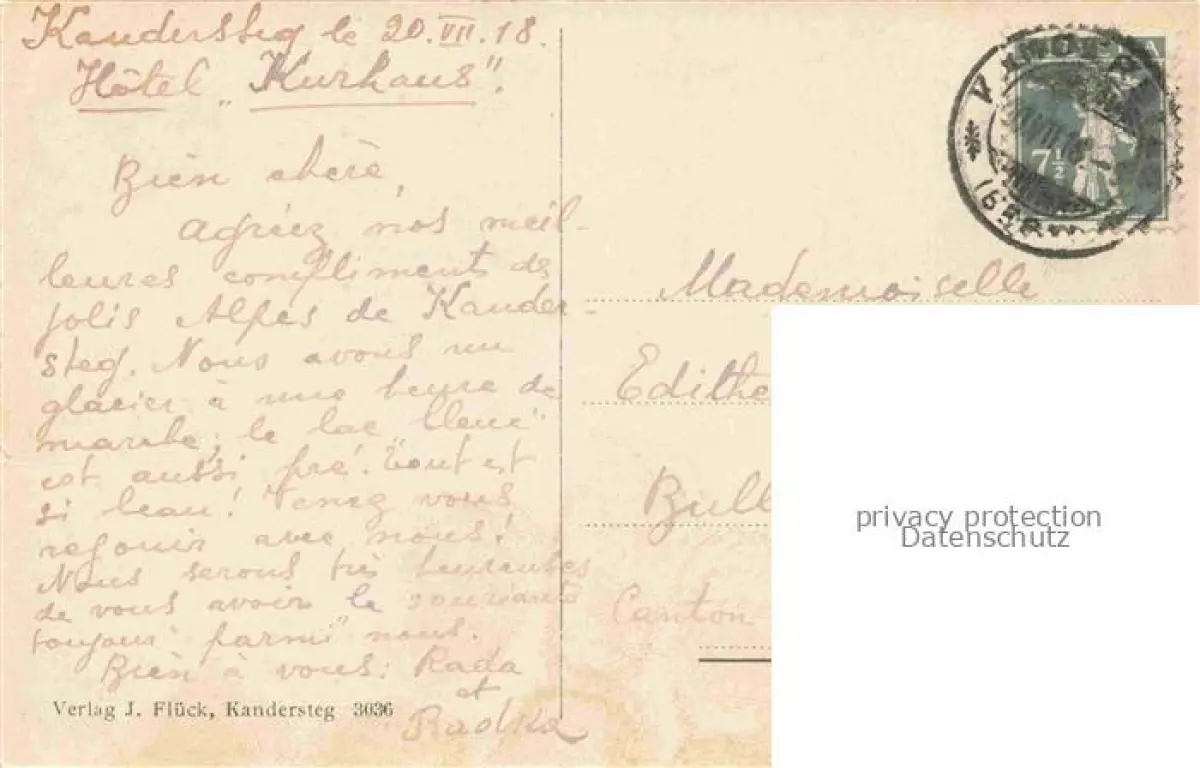 Kandersteg le 20.VII.18.
Hôtel „Kurhaus".
Bien chère,
agréez nos meil-
leures compliments des
jolis Alpes de Kander-
steg. Nous avons un
glacier à une heure de
marche, le lac bleue"
est aussi pré. Tout est
si beau! Venez vous
rejouir avec nous!
Nous serons très heureuses
de vous avoir
toujour parmi nous.
Bien à vous: Rada
et
Radka
Verlag J. Flück, Kandersteg 3036
7½
Mademoiselle
Edithe
Bull
Canton
privacy protection
Datenschutz